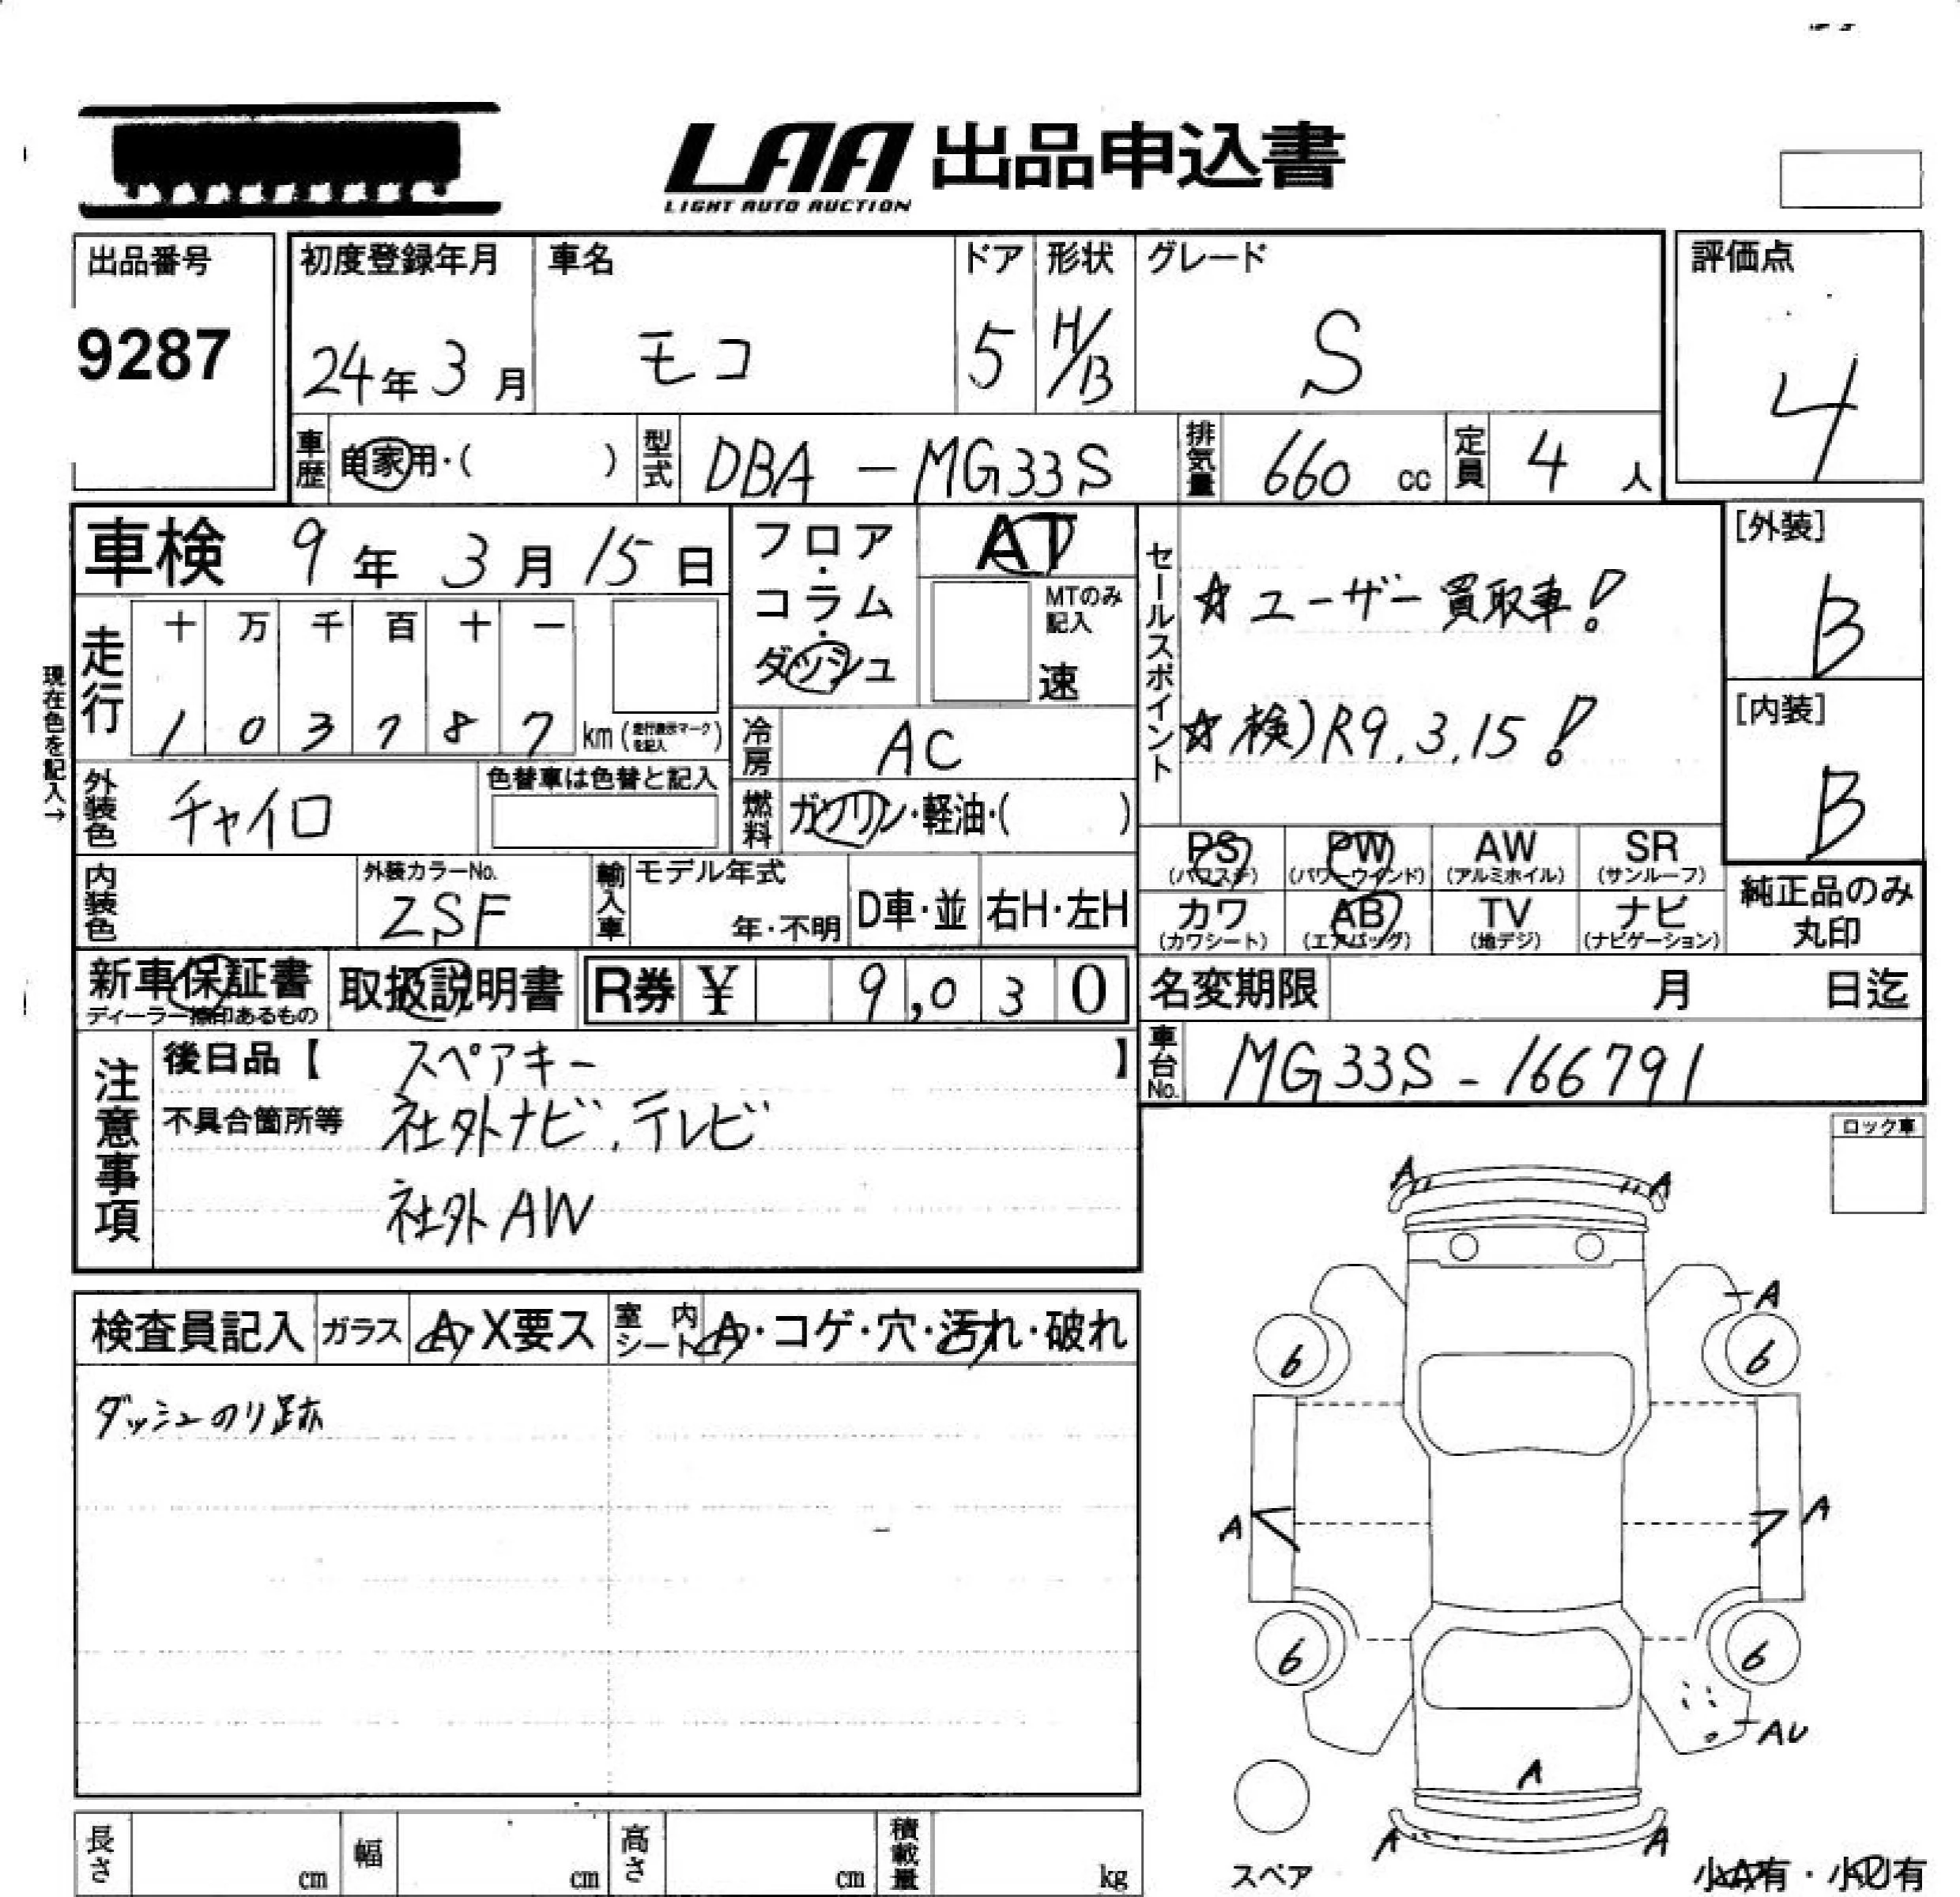 LAA 出品申込書
LIGHT AUTO AUCTION
出品番号
9287
初度登録年月
24年3月
車名
モコ
ドア
5
形状
H/B
グレード
S
評価点
4
車歴
自家用・( )
型式
DBA - MG33S
排気量
660 cc
定員
4 人
車検 9年 3月 15日
フロア・コラム・ダッシュ
AT
MTのみ記入
速
セールスポイント
☆ユーザー買取車!
☆検)R9.3.15!
[外装]
B
[内装]
B
現在色を記入→
走行
十 万 千 百 十 一
1 0 3 7 8 7 km (走行表示マークを記入)
冷房
AC
外装色
チャイロ
色替車は色替と記入
燃料
ガソリン・軽油・( )
PS (パワステ)
PW (パワーウインド)
AW (アルミホイル)
SR (サンルーフ)
カワ (カワシート)
AB (エアバッグ)
TV (地デジ)
ナビ (ナビゲーション)
純正品のみ丸印
内装色
外装カラーNo.
ZSF
輸入車
モデル年式
年・不明
D車・並
右H・左H
新車保証書
ディーラー捺印あるもの
取扱説明書
R券 ¥ 9,030
名変期限 月 日迄
車台No.
MG33S-166791
注意事項
後日品【 スペアキー 】
不具合箇所等 社外ナビ、テレビ
社外AW
ロック車
検査員記入
ガラス A・X要ス
室内シート A・コゲ・穴・汚れ・破れ
ダッシュのり跡
A A
A
6 6
A A
6 6
AU
A
A A
スペア
小A有・小U有
長さ cm
幅 cm
高さ cm
積載量 kg